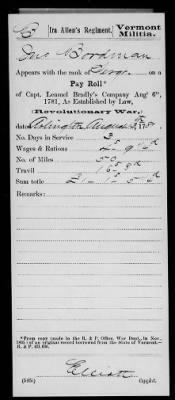 B
Ira Allen's Regiment,
Vermont
Militia.
Jno Bordman
Appears with the rank of Serg. on a
Pay Roll*
of Capt. Lemuel Bradly's Company Augt 6th,
1781, As Established by Law,
(Revolutionary War,)
dated Arlington, August
No. Days in Service 3
Wages & Rations
No. of Miles 50
Travil
Sum totle
Remarks:
*From copy made in the R. & P. Office, War Dept., in Nov.
of an original record borrowed from the State of Vermont.—
R. & P.
Elliott
Copyist.